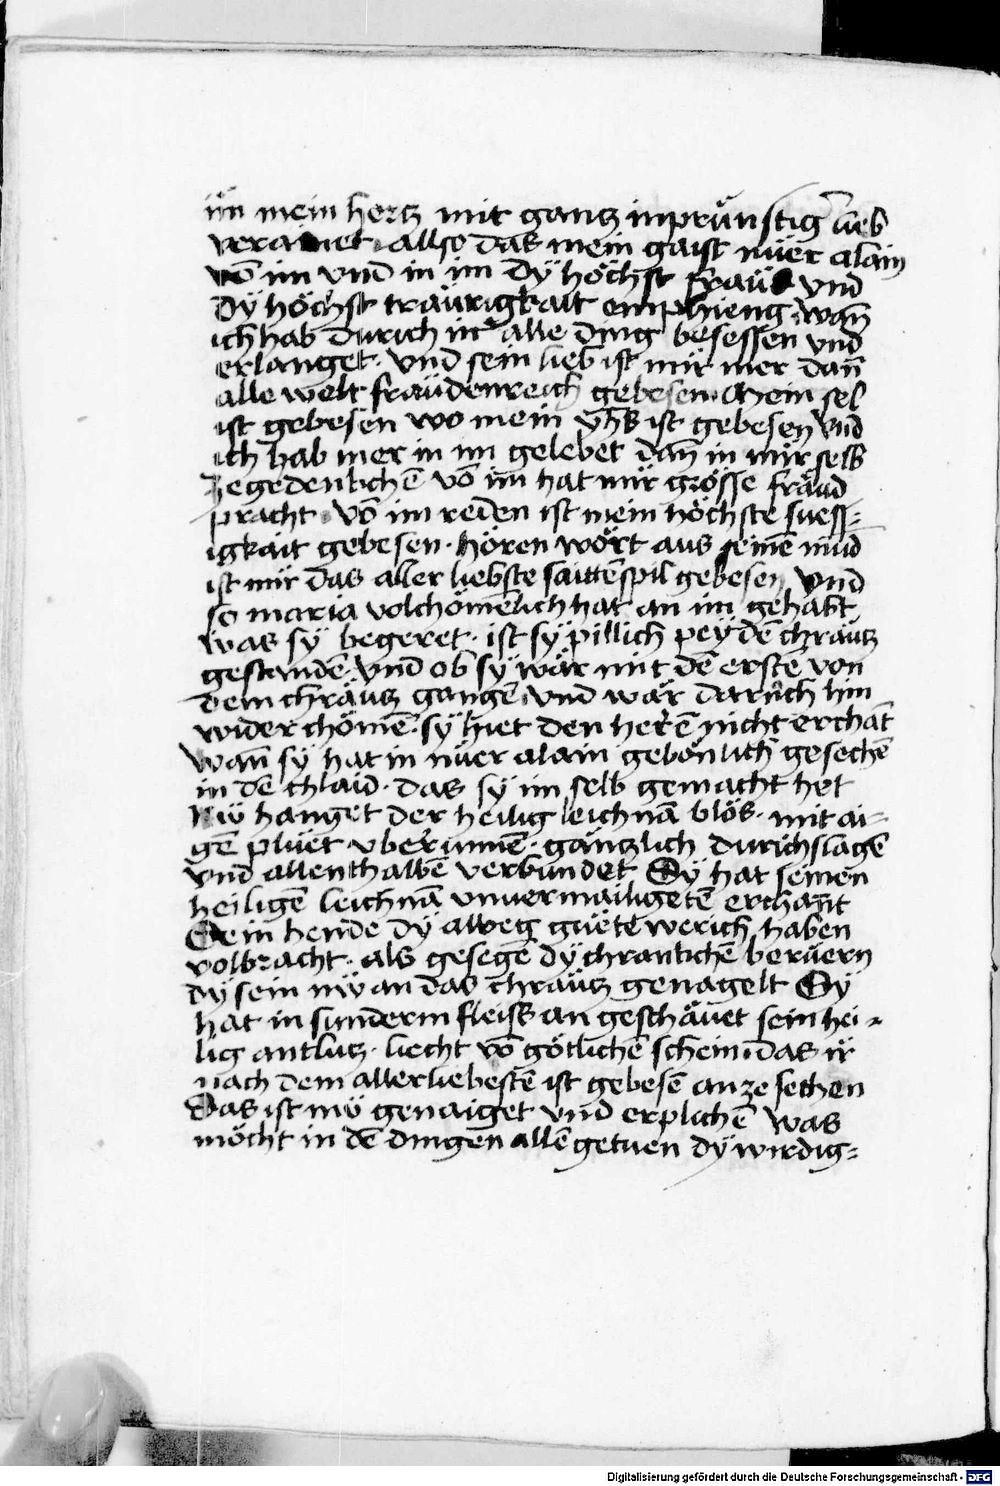 im mein hertz mit gantz inprünstig lieb
verainet allso das mein gaist nüer alain
vō im vnd in im dÿ höchst fraüd vnd
dÿ höchst traürigkait emphieng wan̄
ich hab durich in alle ding besessen vnd
erlanget · vnd sein lieb ist mir mer dan̄
alle welt fraüdenreich gebesen · Mein sel
ist gebesen wo mein yħs ist gebesen vnd
ich hab mer in im gelebet dan̄ in mir selb
ze gedenkchē vō im hat mir grösse fraüd
pracht · vō im reden ist mein höchste suess-
igkait gebesen · hören wört aus seinē mūd
ist mir das aller liebste saittēspil gebesen vnd
so maria volchömēlich hat an im gehabt
was sÿ begeret · ist sÿ pillich peÿ dē chräutz
gestandē · vnd ob sÿ wär mit dē erstē von
dem chräutz gangē vnd wär darnach hin
wider chömē · sÿ hiet den herrē nicht erchāt
wan̄ sÿ hat in nüer alain gebönlich gesechē
in dē chlaid · das sÿ im selb gemacht het
Nu hanget der heilig leichnā blös · mit ai-
gē pluet vberunnē · gäntzlich durichslagē
vnd allenthalbē verbundet Sÿ hat seinen
heiligē leichnā unvermailigetē erchan̄t
Sein hende dÿ albeg guetë werich haben
volbracht · als gesegē dÿ chrankchē berüern
dÿ sein nw an das chräutz genagelt Sÿ
hat in sunderm fleiss an geschäuet sein hei-
lig antlutz · liecht vō götlichē schein · das ir
nach dem allerliebestē ist gebesē an ze sechen
Das ist nw genaiget vnd erplichē was
möcht in dē dingen allē getuen dÿ wirdig-
Digitalisierung gefördert durch die Deutsche Forschungsgemeinschaft - DFG